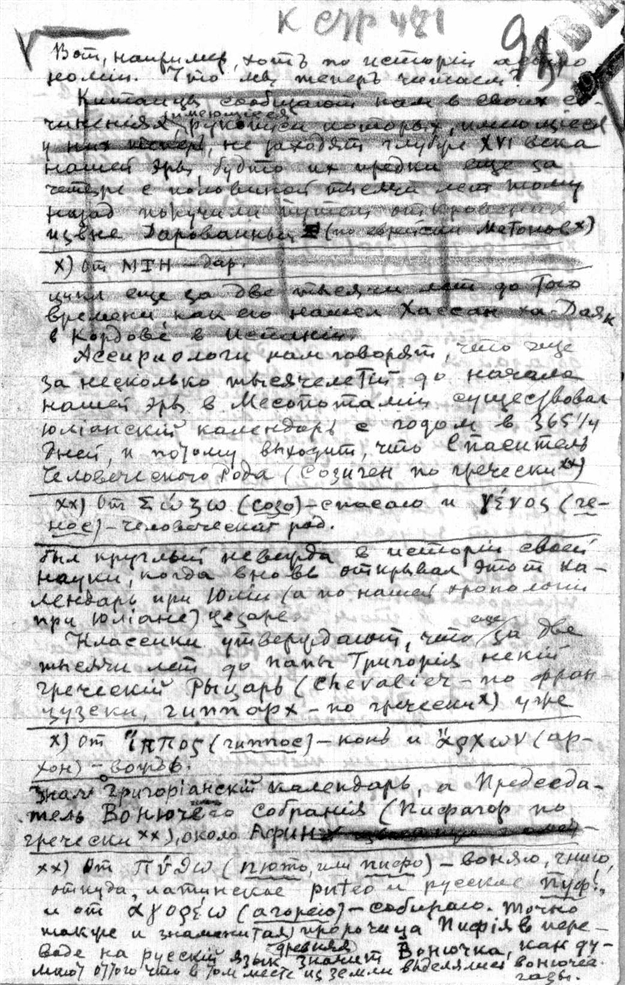 К стр 481
98
Вот, например, хоть по исторіи астро
номіи. Что мы теперь читаем?
Китайцы сообщают нам в своих со-
чинениях, рукописи которых, имеющіеся
у них теперь, не заходят глубже XVI века
нашей эры, будто их предки еще за
четыре с половиной тысячи лет тому
назад получили путем откровения
извне Дарованный (по еврейски Метонов x)
x) От МТН – дар.
цикл еще за две тысячи лет до того
времени как его нашел Хассан ха-Даян
в Кордове в Испаніи.
Ассириологи нам говорят, что еще
за несколько тысячелетій до начала
нашей эры в Месопотаміи существовал
юліанскій календарь с годом в 365 1/4
дней, и потому выходит, что Спаситель
Человеческого Рода (Созиген по гречески xx)
xx) От Σώζω (созо) – спасаю и γένος (ге-
нос) – человеческій род.
был круглый невежда в исторіи своей
науки, когда вновь открывал этот ка-
лендарь при Юліи (а по нашей хронологіи
при Юліане) Цезаре.
Классики утверждают, что еще за две
тысячи лет до папы Григорія некій
греческій Рыцарь (Chevalier – по фран
цузски, гиппарх – по гречески x) уже
x) От ἵππος (гиппос) – конь и ἄρχων (ар-
хон) – вождь.
знал Григоріанскій календарь, а Председа-
тель Вонючего Собранія (Пифагор по
гречески xx), около Афин
xx) От Πύθω (пюто, или пифо) – воняю, гнию,
откуда латинское puteo и русское пуф!,
и от ἀγορέω (агорео) – собираю. Точно
также и знаменитая пророчица Пифія в пере-
воде на русскій язык значит древняя Вонючка, как ду-
мают оттого что в том месте из земли выделялись вонючіе
газы.